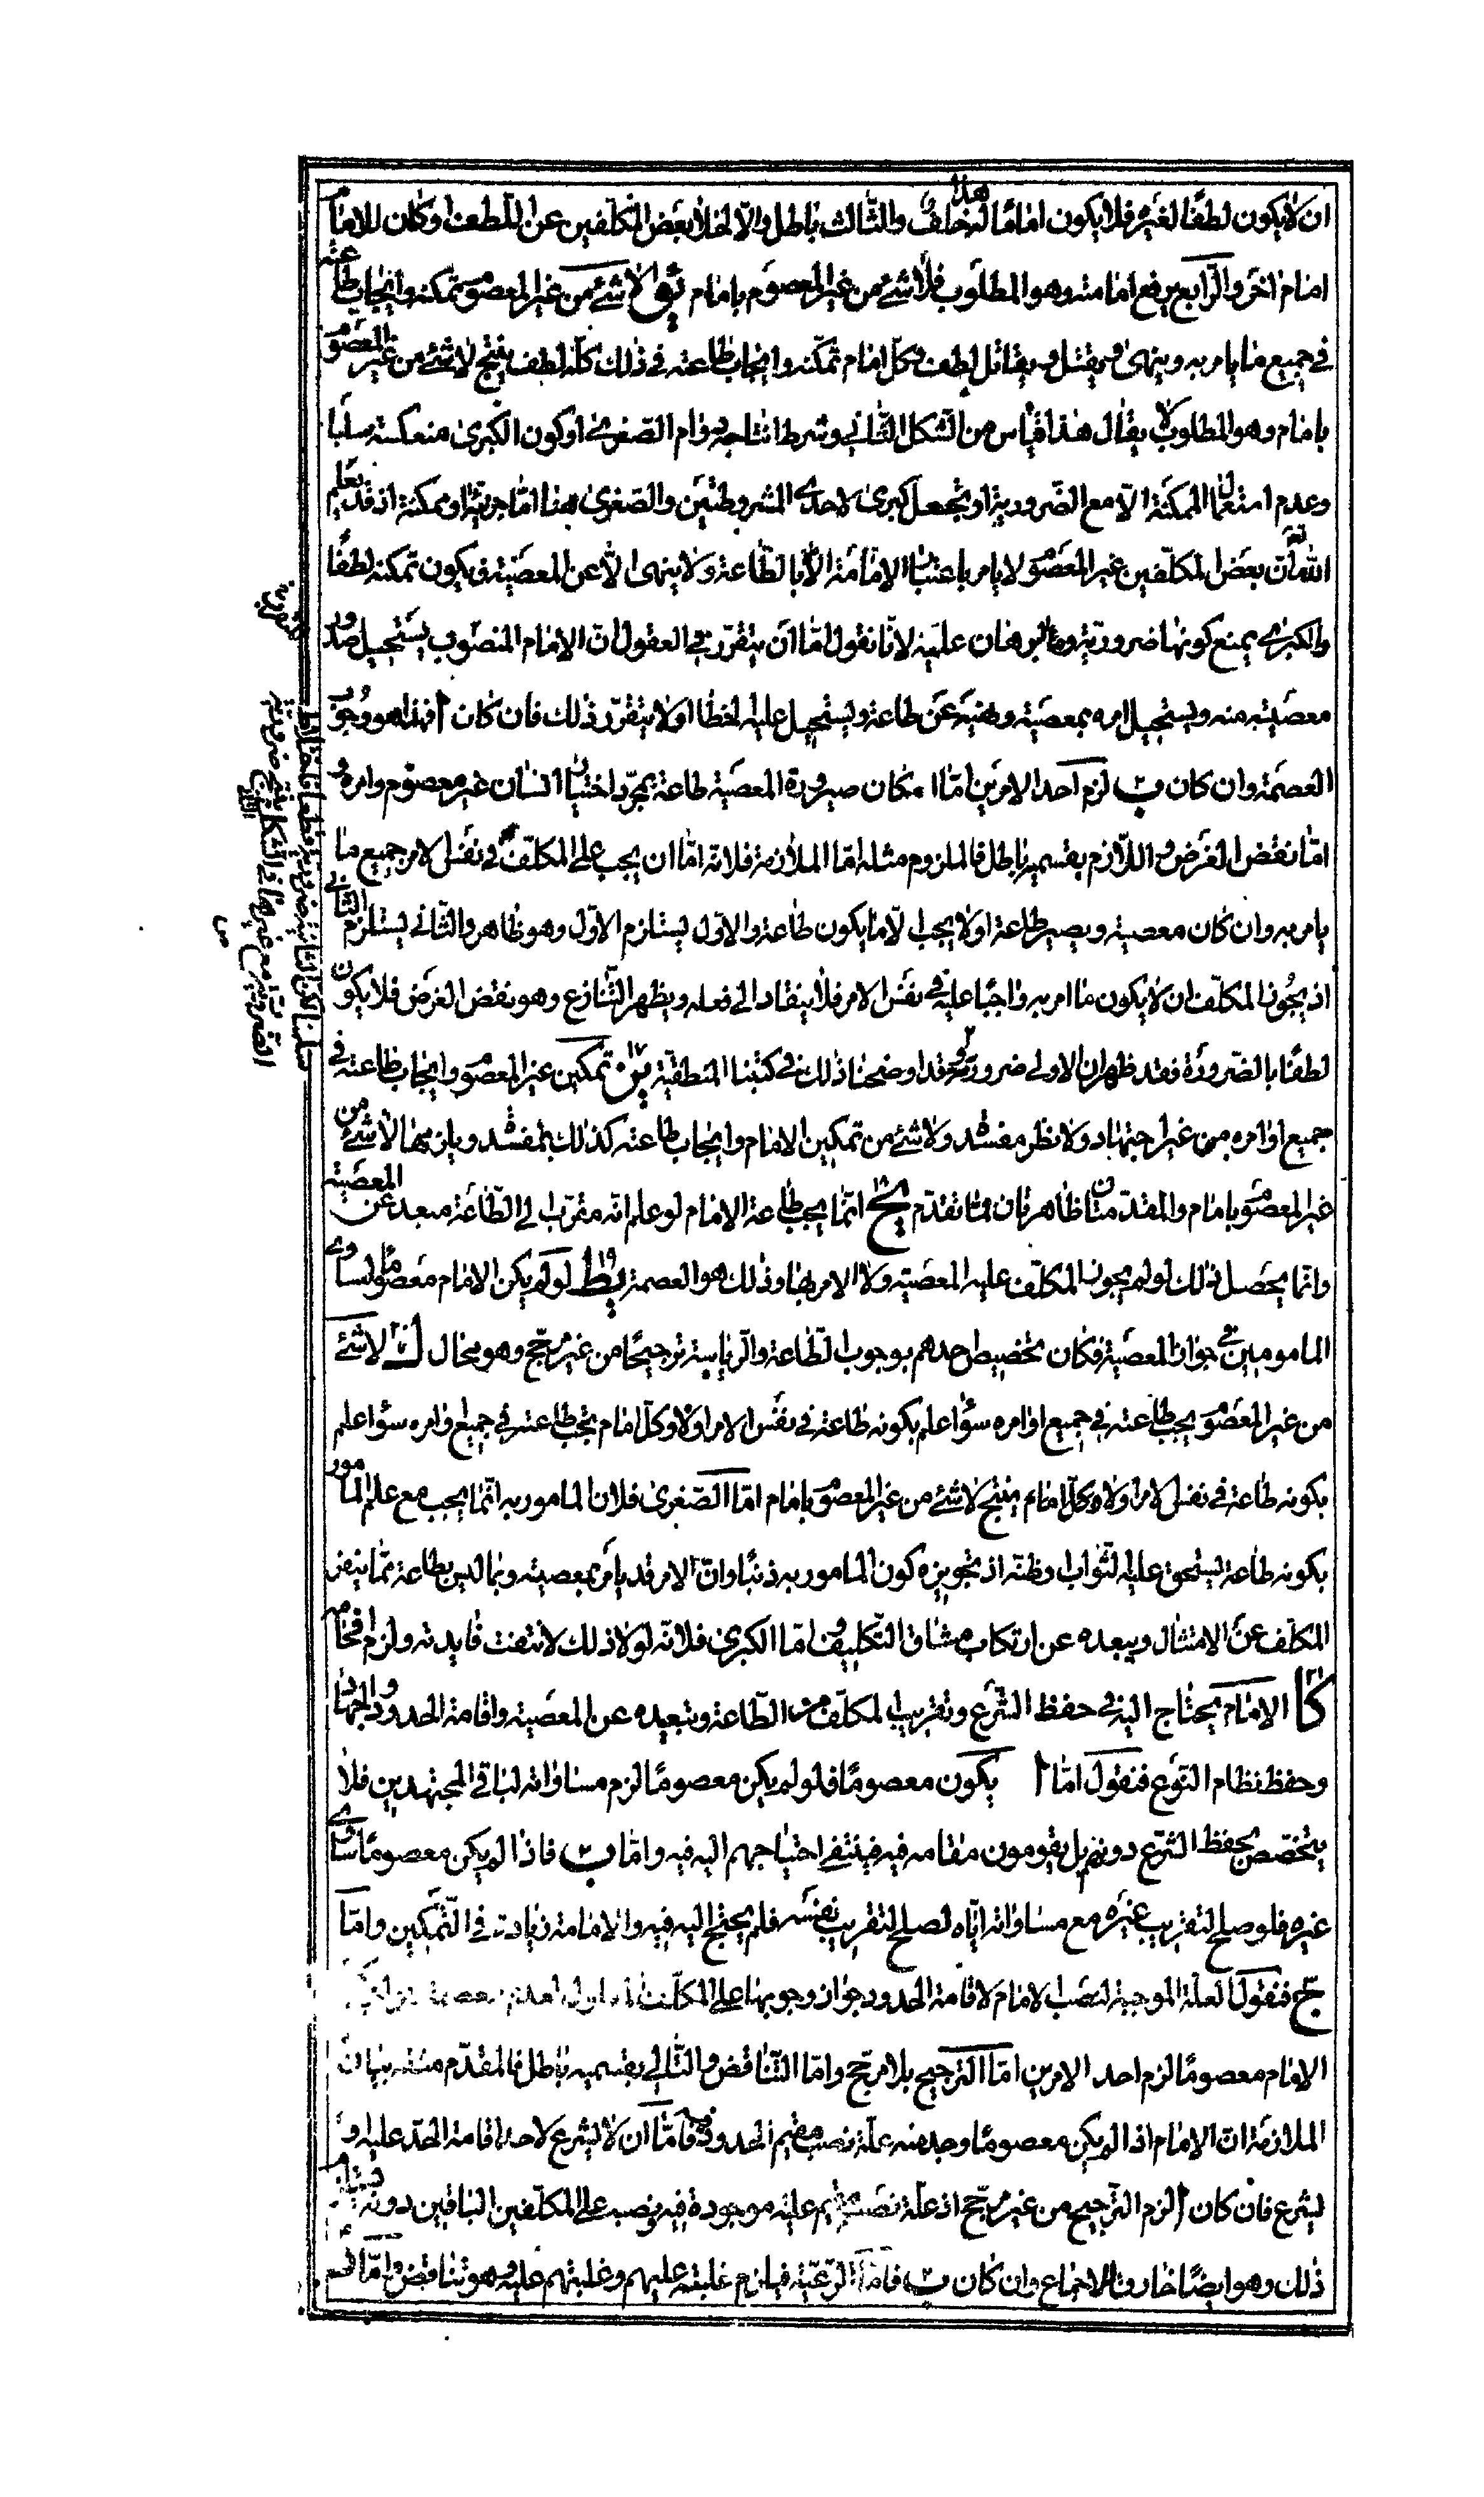 ان لا يكون لطفًا لغيره فلا يكون امامًا له هذا خلف والثّالث باطل والّا لخلا بعض المكلّفين عن اللّطف او كان للامام
امام اخر والرّابع يرفع امامته وهو المطلوب فلا شئ من غير المعصوم بامام يو لا شئ من غير المعصوم تمكنه وايجاب طاعته
في جميع ما يامر به وينهى ويقتل ويقاتل لطف وكلّ امام تمكّنه وايجاب طاعته في ذلك كلّه لطف ينتج لا شئ من غير المعصوم
بامام وهو المطلوب لا يقال هذا قياس من الشكل الثّاني وشرط انتاجه دوام الصّغرى او كون الكبرى منعكسة سلبا
وعدم استعمال الممكنة الّا مع الضّرورية او تجعل كبرى لاحدى المشروطتين والصّغرى هنا امّا جزئيّة او ممكنة اذ قد يعلم
الله تعالى انّ بعض المكلّفين غير المعصوم لا يامر باعتبار الامامة الّا بالطّاعة ولا ينهى الّا عن المعصية فيكون تمكنه لطفًا
والكبرى يمنع كونها ضروريّة وما البرهان عليه لانّا نقول امّا ان يتقرّر في العقول انّ الامام المنصوب يستحيل صدور
معصية منه ويستحيل امره بمعصية ونهيه عن طاعة ويستحيل عليه الخطا او لا يتقرّر ذلك فان كان ا فهذا هو وجوب
العصمة وان كان ب لزم احد الامرين امّا امكان صيرورة المعصية طاعة بمجرّد اختيار انسان غير معصوم وامره و
امّا نقض الغرض واللّازم بقسميه باطل فالملزوم مثله امّا الملازمة فلانّه امّا ان يجب على المكلّف في نفس الامر جميع ما
يامر به وان كان معصية ويصير طاعة او لا يجب الّا ما يكون طاعة والاوّل يستلزم الاوّل وهو ظاهر والثّاني يستلزم الثّاني
اذ يجوز المكلّف ان لا يكون ما امر به واجبًا عليه في نفس الامر فلا ينقاد الى فعله ويظهر التّنازع وهو نقض الغرض فلا يكون
لطفًا بالضّرورة فقد ظهر ان الاولى ضروريّة وقد اوضحنا ذلك في كتبنا المنطقيّة يز تمكين غير المعصوم وايجاب طاعته في
جميع اوامره من غير اجتهاد ولا نظر مفسد ولا شئ من تمكين الامام وايجاب طاعته كذلك بمفسد ويلزمها لا شئ من
غير المعصوم بامام والمقدّمتان ظاهرتان ممّا تقدّم يح انّما يجب طاعة الامام لو علم انّه مقرّب الى الطّاعة مبعد عن المعصية
وانّما يحصل ذلك لو لم يجوز المكلّف عليه المعصية ولا الامر بها وذلك هو العصمة يط لو لم يكن الامام معصومًا لساوى
المامومين في جواز المعصية فكان تخصيص احدهم بوجوب الطّاعة والرياسة ترجيحًا من غير مرجّح وهو محال ك لا شئ
من غير المعصوم يجب طاعته في جميع اوامره سواء علم بكونه طاعة في نفس الامر او لا وكلّ امام يجب طاعته في جميع اوامره سواء علم
بكونه طاعة في نفس الامر او لا ينتج لا شئ من غير المعصوم بامام امّا الصّغرى فلان المامور به انّما يجب مع علم المامور
بكونه طاعة ليستحق عليه الثّواب وظنّه اذ تجويزه كون المامور به ذنبًا وانّ الامر قد يامر بمعصية وبما ليس بطاعة ممّا ينفر
المكلّف عن الامتثال ويبعده عن ارتكاب مشاق التّكليف وامّا الكبرى فلانّه لولا ذلك لانتفت فايدته ولزم افحامه
كا الامام يحتاج اليه في حفظ الشّرع وتقريب المكلّف من الطّاعة وتبعيده عن المعصية واقامة الحدود والجهاد
وحفظ نظام النّوع فنقول امّا ا يكون معصومًا فلو لم يكن معصومًا لزم مساواته لباقي المجتهدين فلا
يتخصّص بحفظ الشّرع دونهم بل يقومون مقامه فيه فينتفي احتياجهم اليه فيه وامّا ب فاذا لم يكن معصومًا ساوى
غيره فلو صلح لتقريب غيره مع مساواته ايّاه لصلح لتقريب نفسه فلم يحتج اليه فيه والامامة زيادة في التّمكين وامّا
ج فنقول العلّة الموجبة لنصب الامام لاقامة الحدود جواز وجوبها على المكلّف
الامام معصومًا لزم احد الامرين امّا التّرجيح بلا مرجّح وامّا التّناقض والتّالي بقسميه باطل فالمقدّم مثله بيان
الملازمة انّ الامام اذا لم يكن معصومًا وجد منه علّة نصب مقيم الحدود فامّا ان لا يشرع لاحد اقامة الحدّ عليه او
يشرع فان كان ا لزم التّرجيح من غير مرجّح اذ علّة نصب مقيم عليه موجودة فيه ونصبه على المكلّفين الباقين دونه
ذلك وهو ايضًا خارق الاجماع وان كان ب فامّا الرّعيّة فيلزم غلبته عليهم وغلبتهم عليه وهو تناقض وامّا
ضرورية
سلمنا لكن الثانية ضرورية قطعا
الضرورية مع غيرها في الشكل الثاني